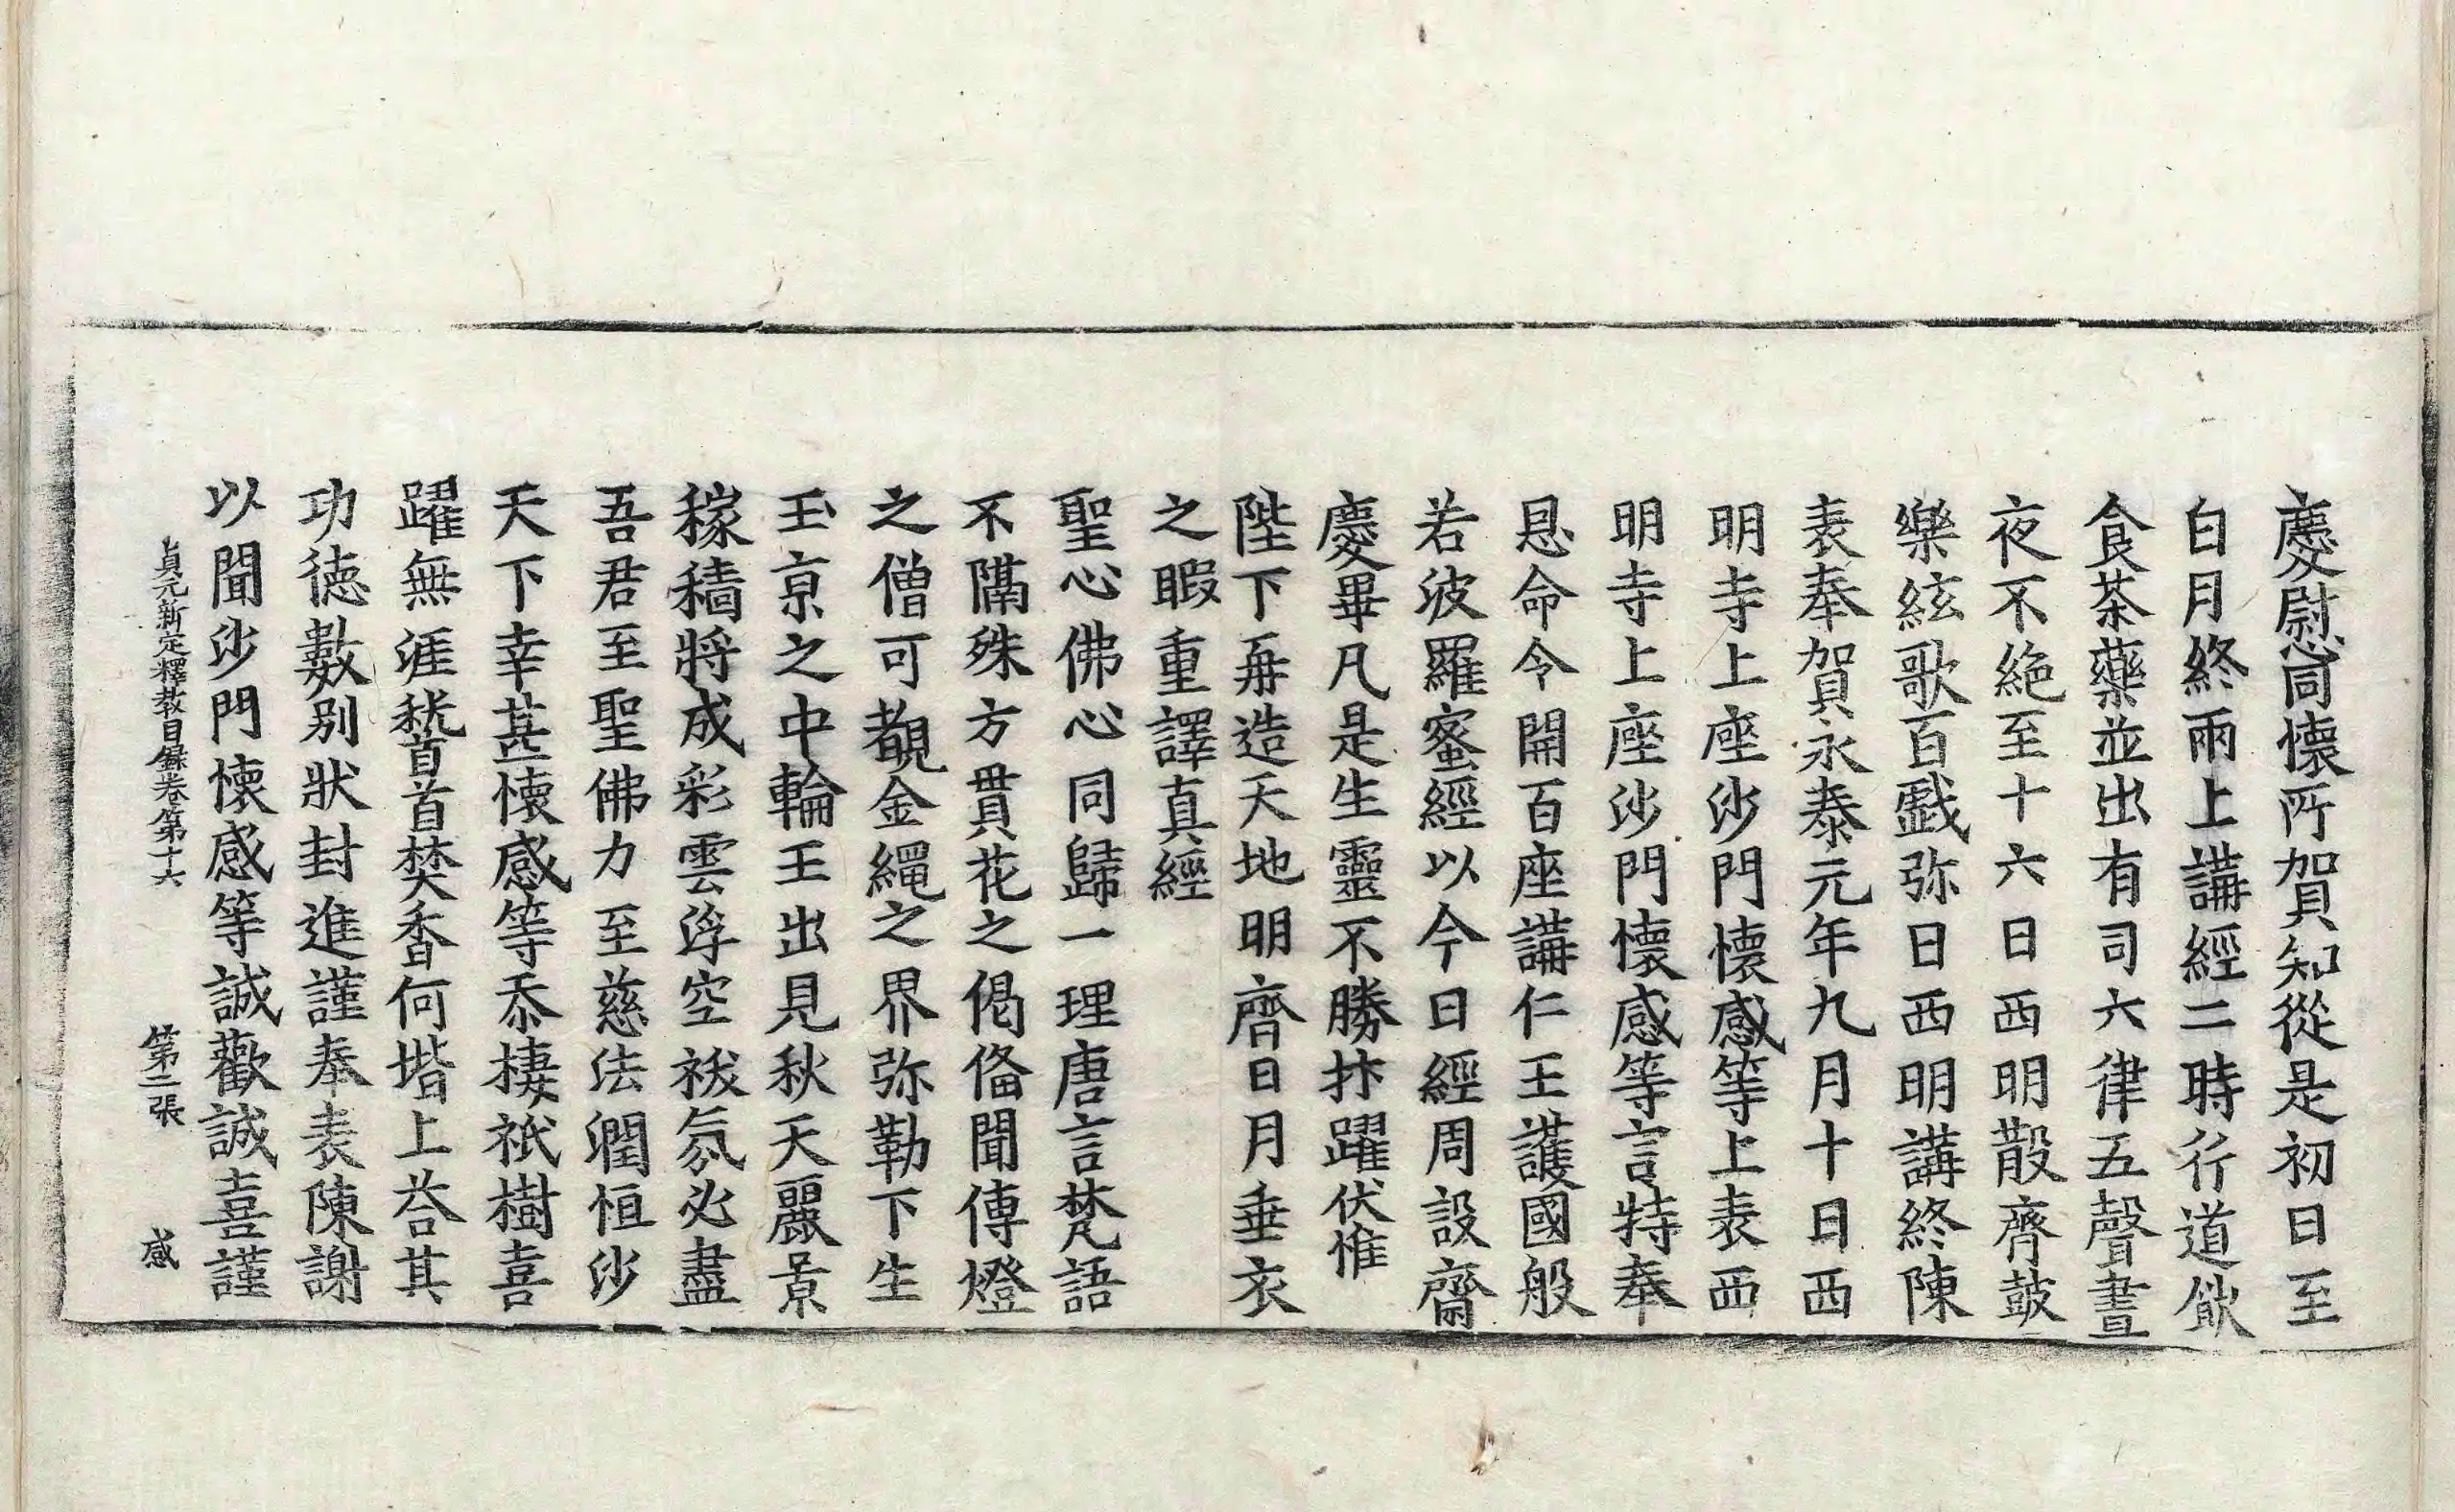 慶慰同懷所賀知從是初日至
白月終兩上講經二時行道飲
食茶藥並出有司六律五聲晝
夜不絶至十六日西明散齊鼓
樂絃歌百戲弥日西明講終陳
表奉賀永泰元年九月十日西
明寺上座沙門懷感等上表西
明寺上座沙門懷感等言特奉
恩命令開百座講仁王護國般
若波羅蜜經以今日經周設齋
慶畢凡是生靈不勝抃躍伏惟
陛下再造天地明齊日月垂衣
之暇重譯真經
聖心佛心同歸一理唐言梵語
不隔殊方貫花之偈俻聞傳燈
之僧可覩金繩之界弥勒下生
玉京之中輪王出見秋天麗景
稼穡將成彩雲浮空祅氛必盡
吾君至聖佛力至慈法潤恒沙
天下幸甚懷感等忝棲祇樹喜
躍無涯嵇首焚香何堦上荅其
功德數別狀封進謹奉表陳謝
以聞沙門懷感等誠歡誠喜謹
貞元新定釋教目錄卷第十六 第二張 感